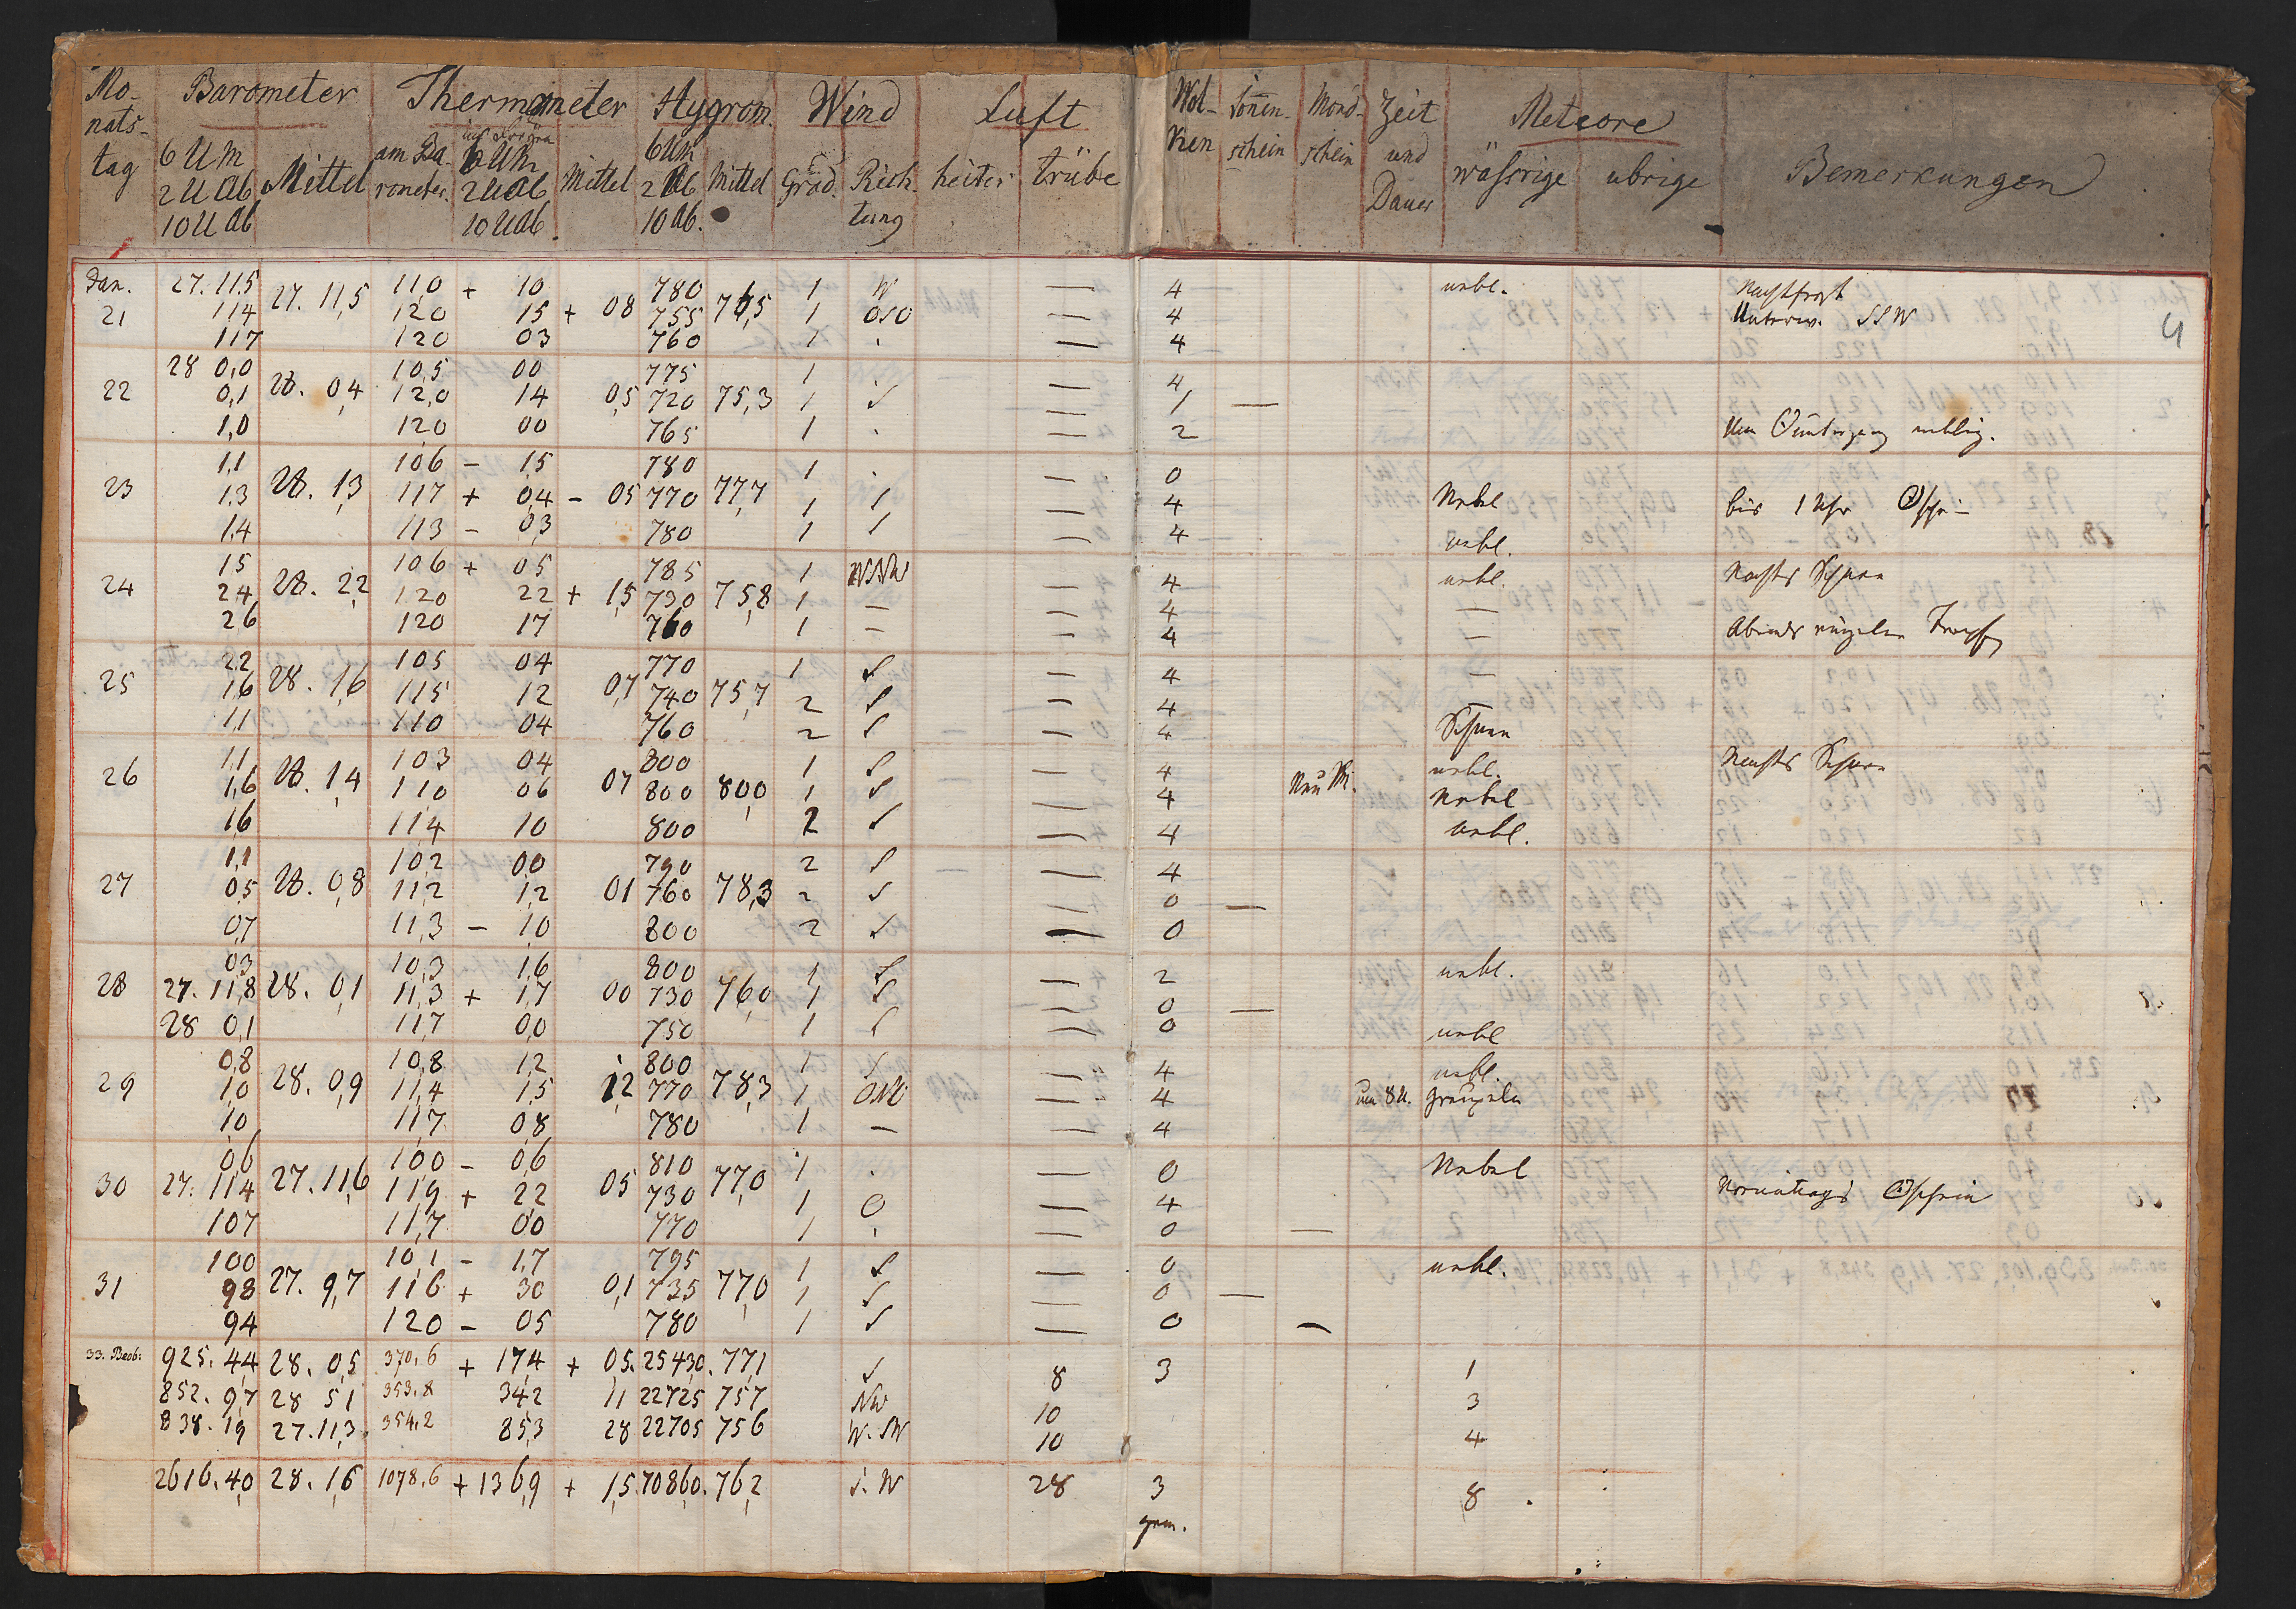 Mo- Barometer Thermometer Hygrom. Wind Luft Wol- Sonnen- Mond- Zeit Meteore
nats- ken schein schein und wäßrige übrige Bemerkungen
tag 6 U M Mittel am Ba- 6 U M Mittel 6 UM Mittel Grad. Rich- heiter trübe Dauer
2 U Ab rometer. 2 U Ab 2 Ab tung
10 U Ab 10 U Ab. 10 Ab.
Jan. 27. 11,5 27. 11,5 11,0 + 10 780 1 W — 4 nebl. Nachtfrost
21 11,4 120 15 + 08 755 76,5 1 OSO — 4 Unterw. SSW
11,7 120 03 760 1 . — 4
28 0,0 10,5 00 775 1 . — 4
22 0,1 28. 0,4 12,0 14 0,5 720 75,3 1 S — 1 —
1,0 120 00 765 1 . — 2
1,1 106 – 1,5 780 1 . — 0
23 1,3 28. 1,3 117 + 0,4 – 05 770 77,7 1 — 4 Nebel bis 1 Uhr
1,4 113 – 0,3 780 1 — 4 nebl.
15 106 + 05 785 1 WNW — 4 nebl. Nachts Schnee
24 24 28. 2,2 120 22 + 1,5 730 75,8 1 — — 4 —
26 120 17 760 1 — — 4 — Abends einzelne Tropfen
22 105 04 770 1 S — 4 —
25 16 28. 1,6 115 12 0,7 740 75,7 2 S — 4
11 110 04 760 2 S — 4 Schnee
11 103 04 800 1 S — 4 nebl. Nachts Schnee
26 1,6 28. 1,4 110 06 07 800 80,0 1 S — 4 Nebel
16 11,4 10 800 2 S — 4 nebl.
1,1 10,2 00 790 2 S — 4
27 0,5 28. 0,8 11,2 1,2 01 760 78,3 2 S — 0 —
0,7 11,3 – 1,0 800 2 S — 0
0,3 10,3 1,6 800 1 S — 2 nebl.
28 27. 11,8 28. 0,1 11,3 + 1,7 00 730 76,0 1 S — 0 —
28 0,1 11,7 0,0 750 1 S — 0 nebl
0,8 10,8 1,2 800 1 S — 4 nebl.
29 1,0 28. 0,9 11,4 1,5 1,2 770 78,3 1 ONO — 4 um 8 U. Graupeln
10 11,7 0,8 780 1 — — 4
0,6 100 – 0,6 810 1 . — 0 Nebel
30 27. 114 27. 11,6 119 + 22 05 730 77,0 1 O — 4
107 11,7 00 770 1 . — 0 —
100 10,1 – 1,7 795 1 S — 0 nebl.
31 98 27. 9,7 116 + 30 0,1 735 77,0 1 S — 0 —
94 120 – 05 780 1 S — 0 —
33. Beob: 925. 4,4 28. 0,5 370,6 + 17,4 + 05. 2543,0. 77,1 S 8 3 1
852. 9,7 28 51 353,8 34,2 11 22725 757 NW 10 3
838. 1,9 27. 11,3. 354,2 85,3 28 22705 756 W. SW 10 4
2616. 4,0 28. 1,6 1078,6 + 136,9 + 1,5. 7086,0. 76,2 S. W 28 3 8